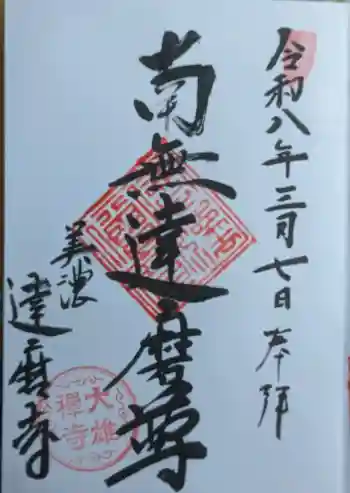 令和八年三月七日奉拝
南無達磨尊
美濃
達磨寺
大雄
禅寺